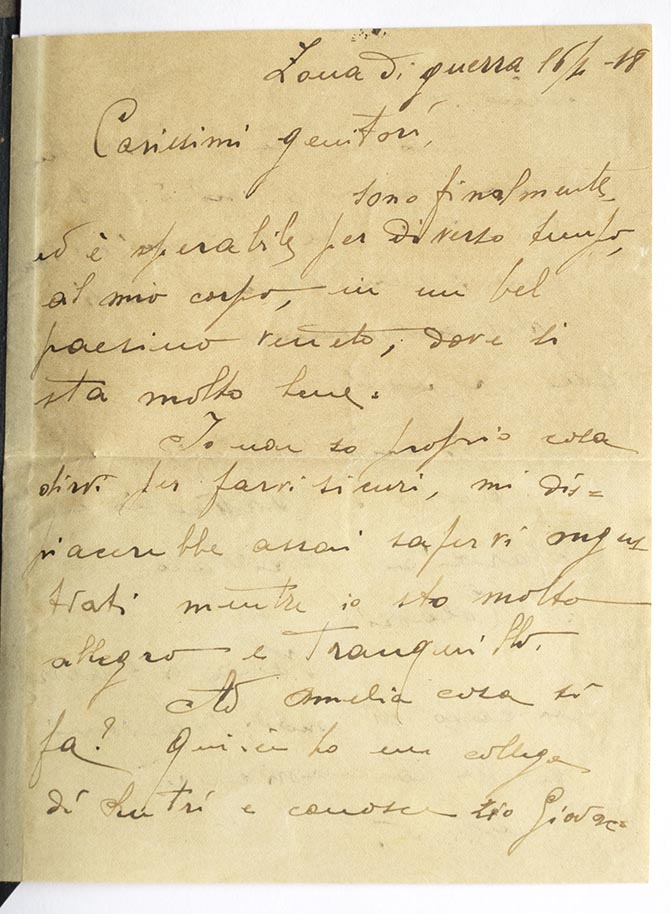 Zona di guerra 16/2 -18
Carissimi genitori,
sono finalmente,
ed è sperabile per diverso tempo,
al mio corpo, in un bel
paesino veneto, dove si
sta molto bene.
Io non so proprio cosa
dirvi per farvi sicuri, mi dis=
piacerebbe assai sapervi angus
trati mentre io sto molto
allegro e tranquillo.
Ad Amelia cosa si
fa? Qui ho un collega
di e conosce zio